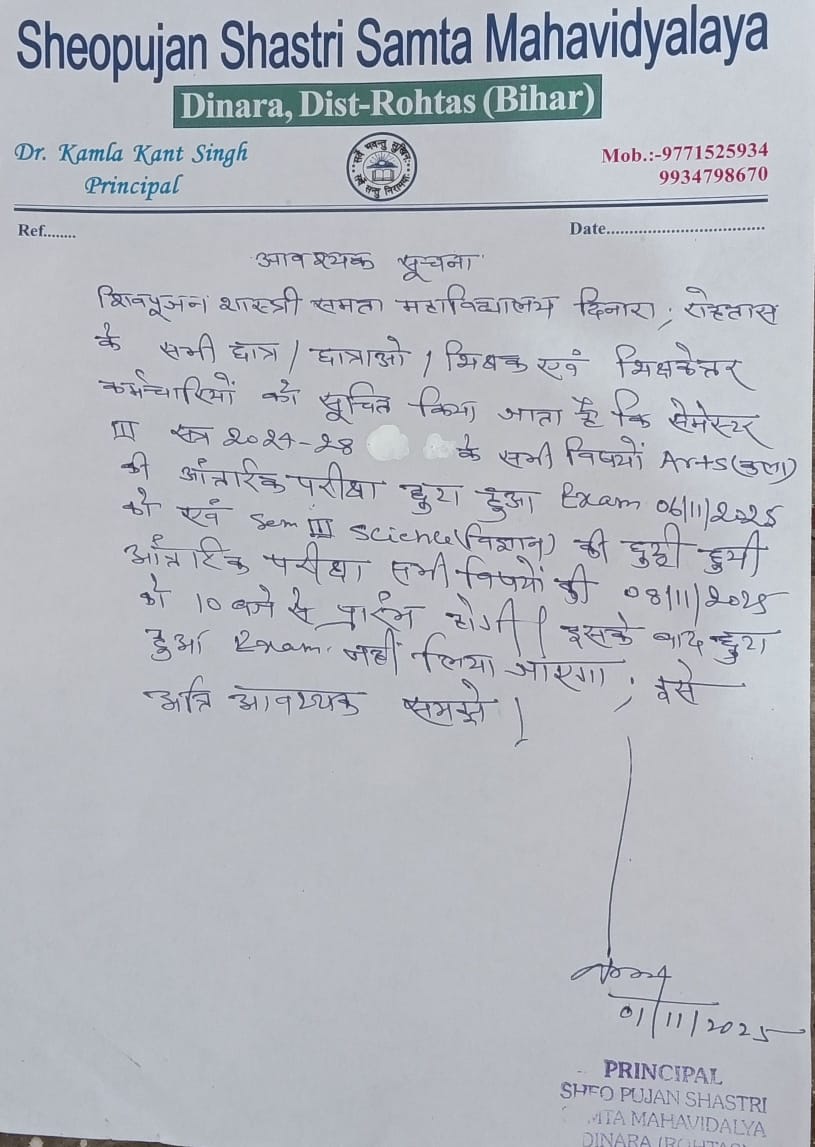 Sheopujan Shastri Samta Mahavidyalaya
Dinara, Dist-Rohtas (Bihar)
Dr. Kamla Kant Singh
Principal
सर्वे भवन्तु सुखिनः
सर्वे सन्तु निरामयाः
Mob.:-9771525934
9934798670
Ref........
Date.................................
आवश्यक सूचना
शिवपूजन शास्त्री समता महाविद्यालय दिनारा, रोहतास
के सभी छात्र / छात्राओ / शिक्षक एवं शिक्षकेत्तर
कर्मचारियों को सूचित किया जाता है कि सेमेस्टर
III सत्र 2024-28 के सभी विषयों Arts (कला)
की आंतरिक परीक्षा छुटा हुआ Exam 06/11/2025
को एवं Sem III Science (विज्ञान) की छुटी हुयी
आंतरिक परीक्षा सभी विषयों की 08/11/2025
को 10 बजे से प्रारंभ होगी। इसके बाद छुटा
हुआ Exam. नहीं लिया जाएगा, इसे
अति आवश्यक समझे।
01/11/2025
PRINCIPAL
SHEO PUJAN SHASTRI
MAHAVIDALYA
DINARA